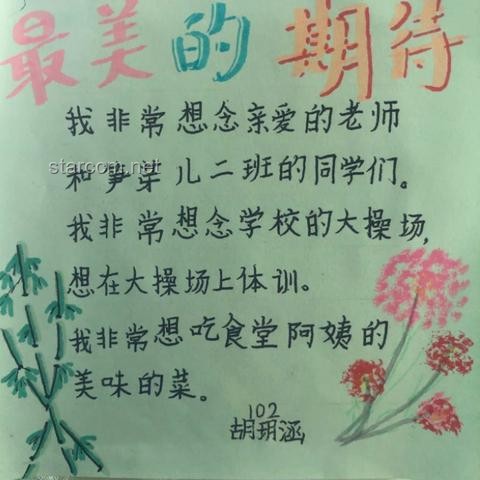 最美的期待
我非常想念亲爱的老师
和笋芽儿二班的同学们。
我非常想念学校的大操场,
想在大操场上体训。
我非常想吃食堂阿姨的
美味的菜。
102
胡玥涵
starcom.net